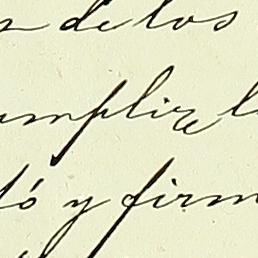 n de los
umplir l
tó y firm